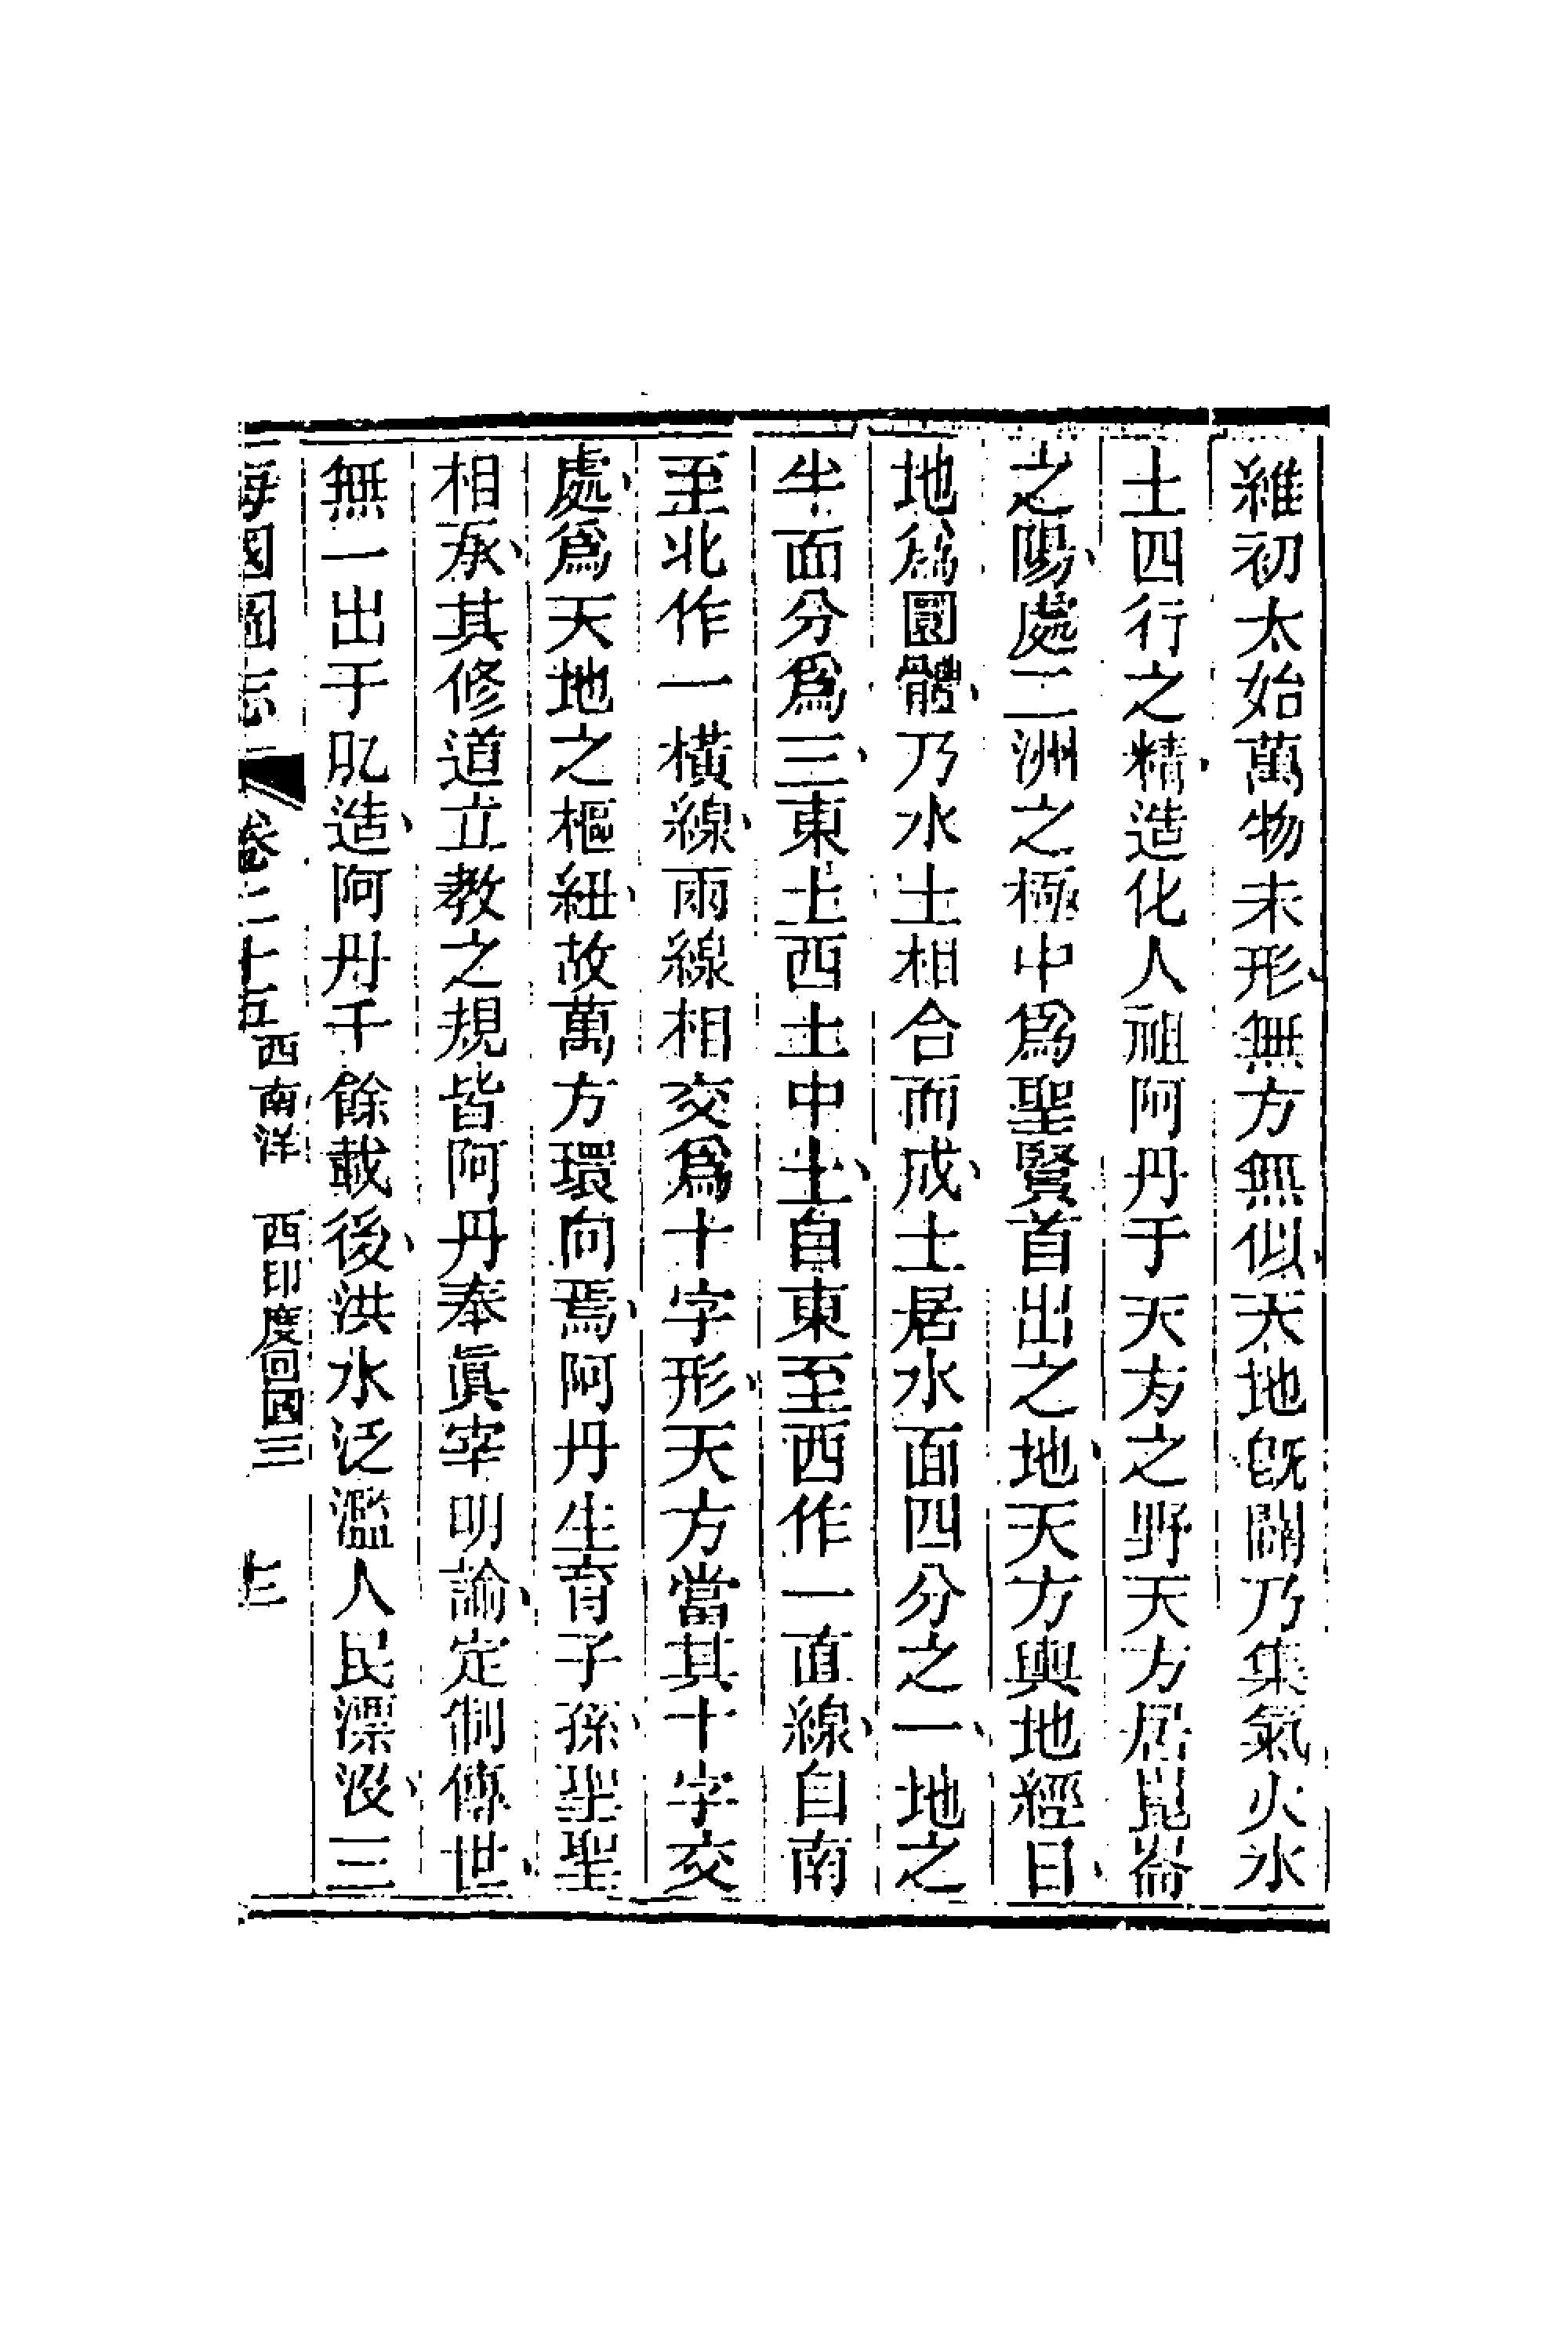 維初太始萬物未形無方無似天地旣闢乃集氣火水
土四行之精造化人祖阿丹于天方之野天方居崑崙
之陽處二洲之極中爲聖賢首出之地天方輿地經曰
地爲圜體乃水土相合而成土居水面四分之一地之
半面分爲三東土西土中土自東至西作一直線自南
至北作一橫線兩線相交爲十字形天方當其十字交
處爲天地之樞紐故萬方環向焉阿丹生育子孫聖聖
相承其修道立教之規皆阿丹奉眞宰明諭定制傳世
無一出于私造阿丹千餘載後洪水泛濫人民漂沒三
海國圖志 卷二十五 西南洋 西印度回國三